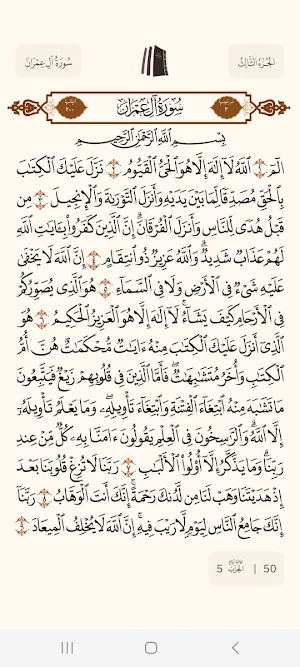 سُورَةُ آلِ عِمْرَانَ
الجُزءُ الثَّالِثُ
سُورَةُ آلِ عِمْرَانَ
بِسْمِ ٱللَّهِ ٱلرَّحْمَٰنِ ٱلرَّحِيمِ
الٓمٓ ١ ٱللَّهُ لَآ إِلَٰهَ إِلَّا هُوَ ٱلْحَىُّ ٱلْقَيُّومُ ٢ نَزَّلَ عَلَيْكَ ٱلْكِتَٰبَ
بِٱلْحَقِّ مُصَدِّقًا لِّمَا بَيْنَ يَدَيْهِ وَأَنزَلَ ٱلتَّوْرَىٰةَ وَٱلْإِنجِيلَ ٣ مِن
قَبْلُ هُدًى لِّلنَّاسِ وَأَنزَلَ ٱلْفُرْقَانَۗ إِنَّ ٱلَّذِينَ كَفَرُوا۟ بِـَٔايَٰتِ ٱللَّهِ
لَهُمْ عَذَابٌ شَدِيدٌۗ وَٱللَّهُ عَزِيزٌ ذُو ٱنتِقَامٍ ٤ إِنَّ ٱللَّهَ لَا يَخْفَىٰ
عَلَيْهِ شَىْءٌ فِى ٱلْأَرْضِ وَلَا فِى ٱلسَّمَآءِ ٥ هُوَ ٱلَّذِى يُصَوِّرُكُمْ
فِى ٱلْأَرْحَامِ كَيْفَ يَشَآءُۚ لَآ إِلَٰهَ إِلَّا هُوَ ٱلْعَزِيزُ ٱلْحَكِيمُ ٦ هُوَ
ٱلَّذِىٓ أَنزَلَ عَلَيْكَ ٱلْكِتَٰبَ مِنْهُ ءَايَٰتٌ مُّحْكَمَٰتٌ هُنَّ أُمُّ
ٱلْكِتَٰبِ وَأُخَرُ مُتَشَٰبِهَٰتٌۖ فَأَمَّا ٱلَّذِينَ فِى قُلُوبِهِمْ زَيْغٌ فَيَتَّبِعُونَ
مَا تَشَٰبَهَ مِنْهُ ٱبْتِغَآءَ ٱلْفِتْنَةِ وَٱبْتِغَآءَ تَأْوِيلِهِۦۗ وَمَا يَعْلَمُ تَأْوِيلَهُۥٓ
إِلَّا ٱللَّهُۗ وَٱلرَّٰسِخُونَ فِى ٱلْعِلْمِ يَقُولُونَ ءَامَنَّا بِهِۦ كُلٌّ مِّنْ عِندِ
رَبِّنَاۗ وَمَا يَذَّكَّرُ إِلَّآ أُو۟لُوا۟ ٱلْأَلْبَٰبِ ٧ رَبَّنَا لَا تُزِغْ قُلُوبَنَا بَعْدَ
إِذْ هَدَيْتَنَا وَهَبْ لَنَا مِن لَّدُنكَ رَحْمَةًۚ إِنَّكَ أَنتَ ٱلْوَهَّابُ ٨ رَبَّنَآ
إِنَّكَ جَامِعُ ٱلنَّاسِ لِيَوْمٍ لَّا رَيْبَ فِيهِۚ إِنَّ ٱللَّهَ لَا يُخْلِفُ ٱلْمِيعَادَ ٩
50 | الحزب 5